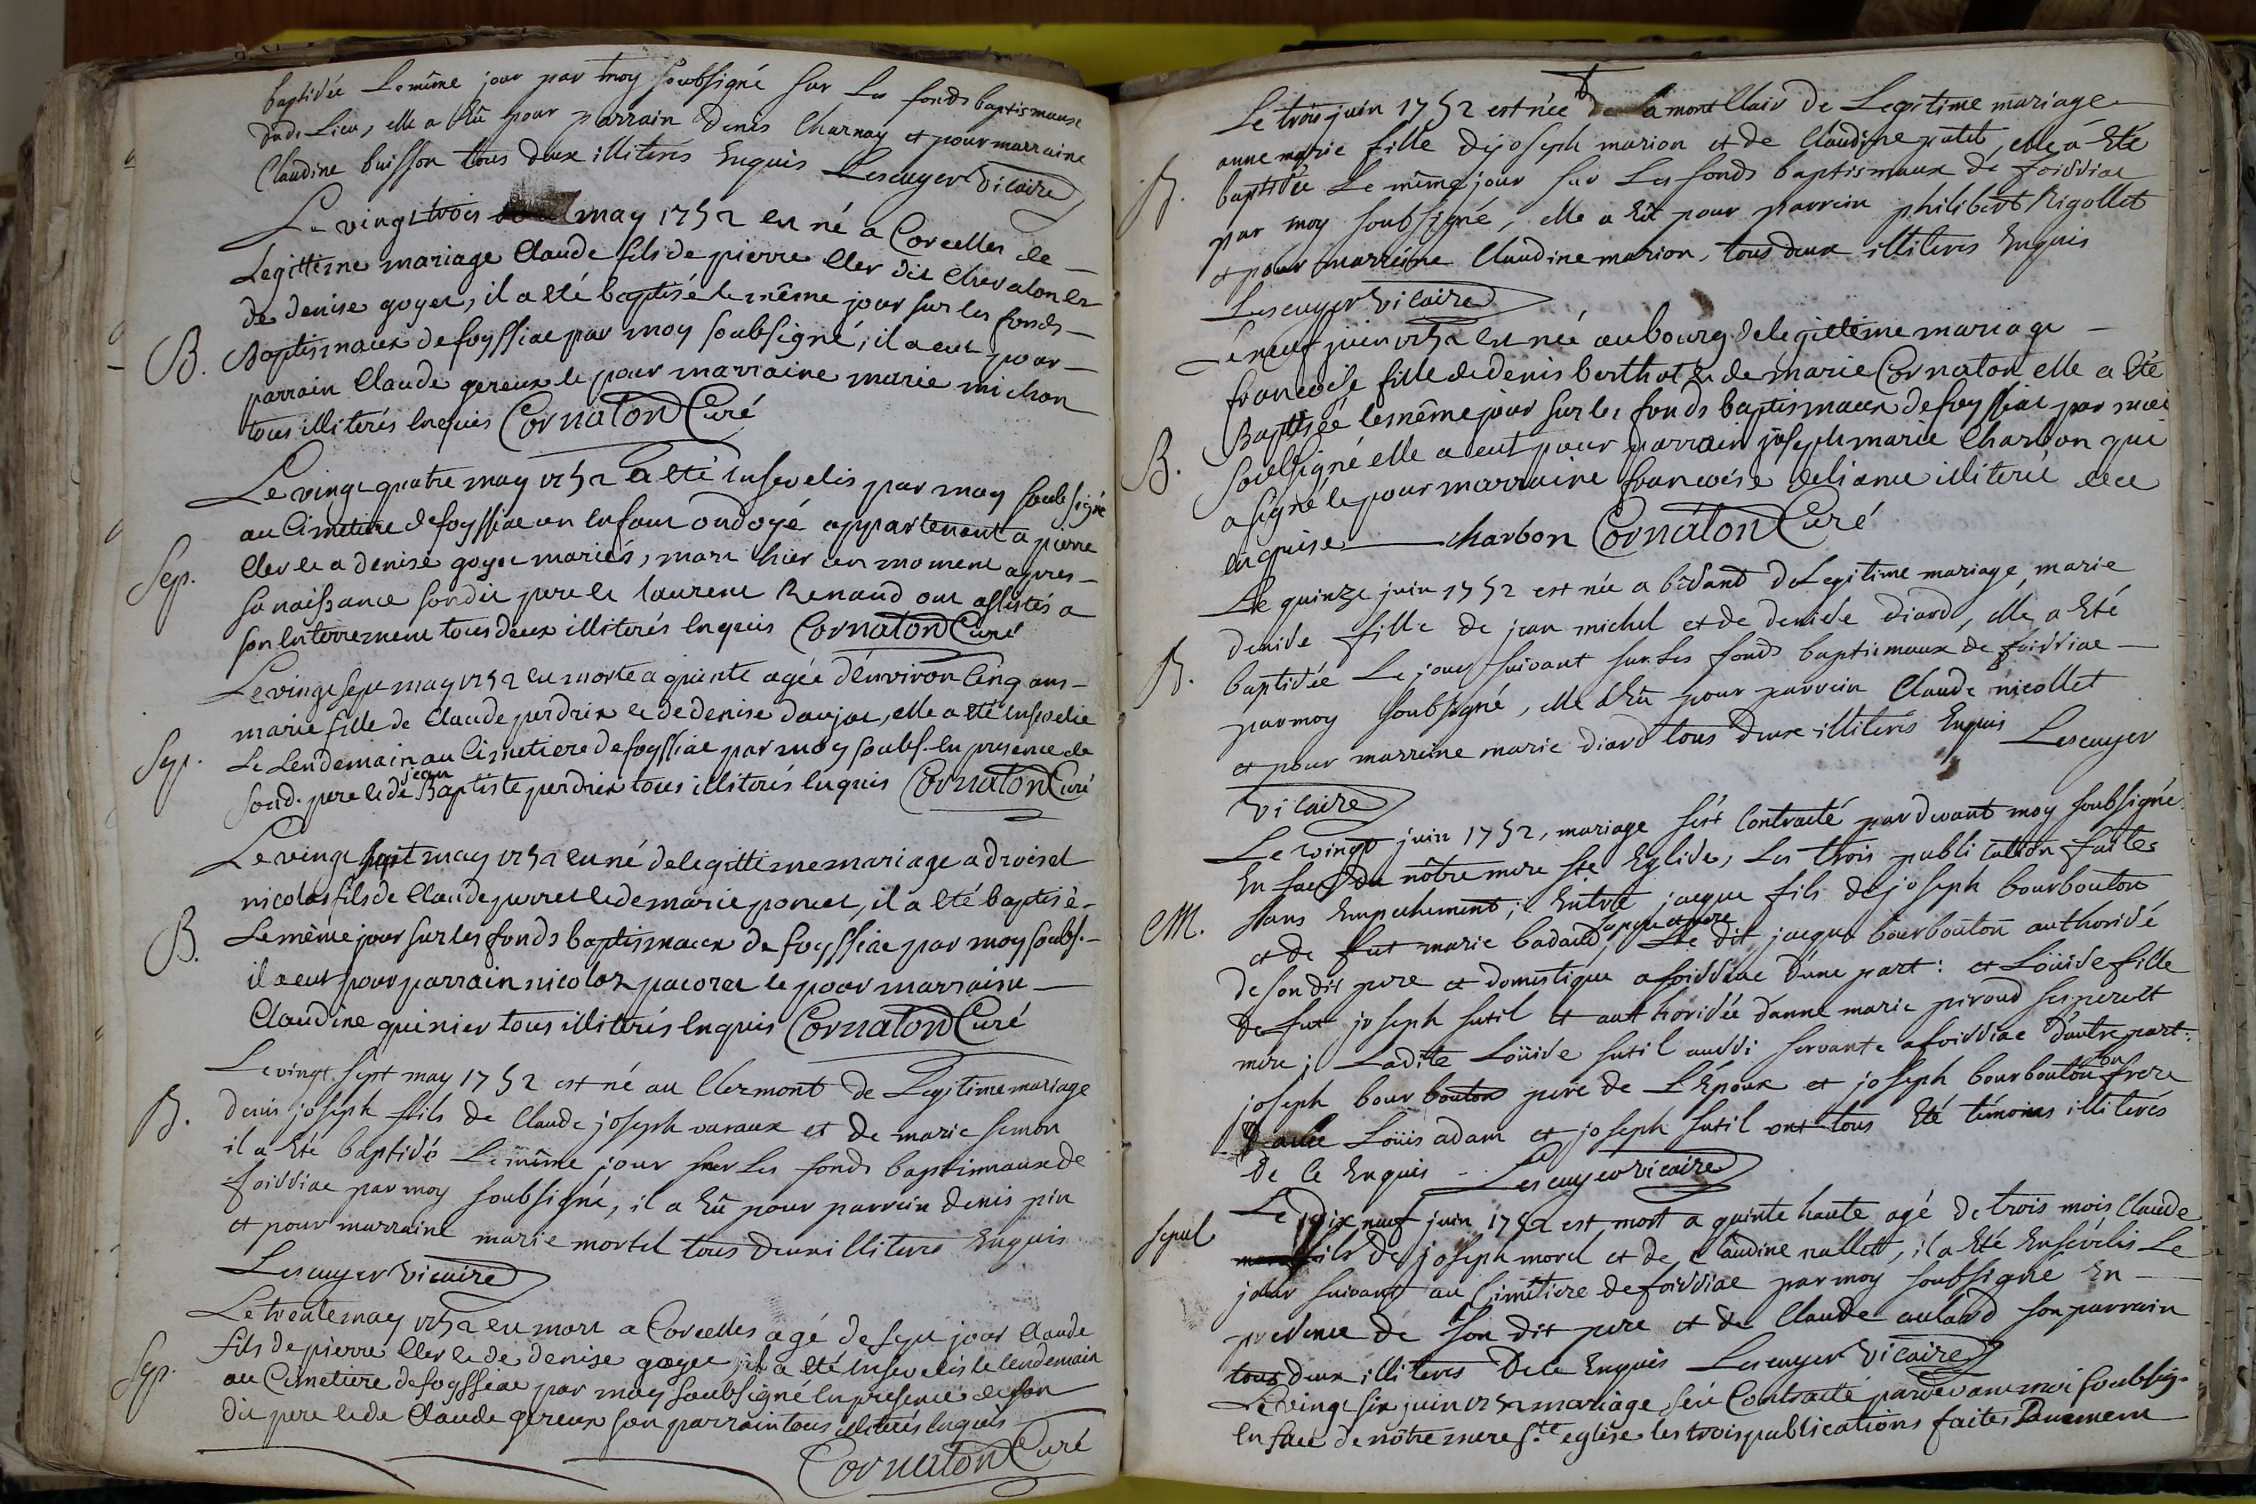 baptisée Le même jour par moy soubsigné sur Les fonds baptismaux
dud. Lieu, elle a Eû pour parrain Denis Charnay et pour marraine
Claudine buisson tous deux illiterés Enquis Lescuyer Vicaire
Le vingt trois may 1752 est né a Corcelles de
Legittime mariage Claude fils de pierre Cler dit Chevalon et
de denise goyet, il a été baptisé le même jour sur les fonds
B. Baptismaux de foyssiac par moy soubsigné, il a eut pour
parrain Claude gereux et pour marraine marie michon
tous illiterés enquis Cornaton Curé
Le vingt quatre may 1752 a été ensevelis par moy soubsigné
au Cimetiere de foyssiac un enfant ondoyé appartenant a pierre
Sep. Cler et a denise goyet mariés, mort hier un moment apres
sa naissance sondit pere et laurent Renaud ont assistés a
son enterrement tous deux illiterés enquis Cornaton Curé
Le vingt sept may 1752 est morte a quinte agée d'environ Cinq ans
marie fille de Claude perdrix et de denise daujat, elle a été ensevelie
Sep. Le Lendemain au Cimetiere de foyssiac par moy soubs. en presence de
soud. pere et de jean Baptiste perdrix tous illiterés enquis Cornaton Curé
Le vingt sept may 1752 est né de legittime mariage a droisel
nicolas fils de Claude perret et de marie ponet, il a été baptisé
B. Le même jour sur les fonds baptismaux de foyssiac par moy soubs.
il a eut pour parrain nicolas pacoret et pour marraine
Claudine quinier tous illiterés enquis Cornaton Curé
Le vingt sept may 1752 est né au Clermont de Legitime mariage
B. denis joseph fils de Claude joseph varaux et de marie semon
il a Eté baptisé Le même jour sur Les fonds baptismaux de
foissiac par moy soubsigné, il a Eû pour parrein denis pin
et pour marraine marie mortel tous deux illiteres Enquis
Lescuyer Vicaire
Le trente may 1752 est mort a Corcelles agé de sept jour Claude
fils de pierre Cler et de denise goyet, il a été ensevelis le lendemain
Sep. au Cimetiere de foyssiac par moy soubsigné en presence de son
dit pere et de Claude gereux son parrain tous illiterés enquis
Cornaton Curé
Le trois juin 1752 est née de Lamont Clair de Legitime mariage
anne marie fille de joseph marion et de Claudine patel, elle a Eté
B. baptisée Le même jour sur Les fonds baptismaux de foissiac
par moy soubsigné, elle a Eû pour parrein philibert Rigollet
et pour marreine Claudine marion, tous deux illiteres Enquis
Lescuyer Vicaire
Le neuf juin 1752 est née au bourg de legittime mariage
francoise fille de denis berthot et de marie Cornaton elle a été
Baptisée le même jour sur les fonds baptismaux de foyssiac par moi
B. soubsigné elle a eut pour parrain joseph marie Charbon qui
a signé et pour marraine francoise deliance illiterée de ce
enquise charbon Cornaton Curé
Le quinze juin 1752 est née a besand de Legitime mariage, marie
denise fille de jean michel et de denise diard, elle a Eté
B. baptisée Le jour suivant sur Les fonds baptismaux de foissiac
par moy soubsigné, elle a Eû pour parrein Claude nicollet
et pour marreine marie diard tous deux illiterés Enquis Lescuyer
Vicaire
Le vingt juin 1752, mariage s'est Contracté par devant moy soubsigné
En face de nôtre mere ste Eglise, Les trois publication faites
M. sans Empechement; Entre jacque fils de joseph bourbouton
et de fut marie badaud ses pere et mere, Le dit jacque bourbouton authorisé
de son dit pere et domestique a foissiac d'une part: et Loüise fille
de fut joseph sutil et authorisée d'anne marie piroud ses pere et
mere; Ladite Loüise sutil aussi servante a foissiac d'autre part:
joseph bourbouton pere de L'Epoux et joseph bourbouton son frere
Loüis adam et joseph sutil ont tous Eté témoins illiterés
de ce Enquis - Lescuyer Vicaire
Le Dix neuf juin 1752 est mort a quinte haute agé de trois mois Claude
sepul fils de joseph morel et de Claudine nallet, il a Eté Ensévélis Le
jour suivant au Cimêtiere de foissiac par moy soubsigné En
presence de son dit pere et de Claude aulard son parrain
tous deux illiteres De ce Enquis Lescuyer Vicaire
Le vingt six juin 1752 mariage s'est Contracté pardevant moi soubsig.
en face de nôtre mere ste eglise les trois publications faites Duement